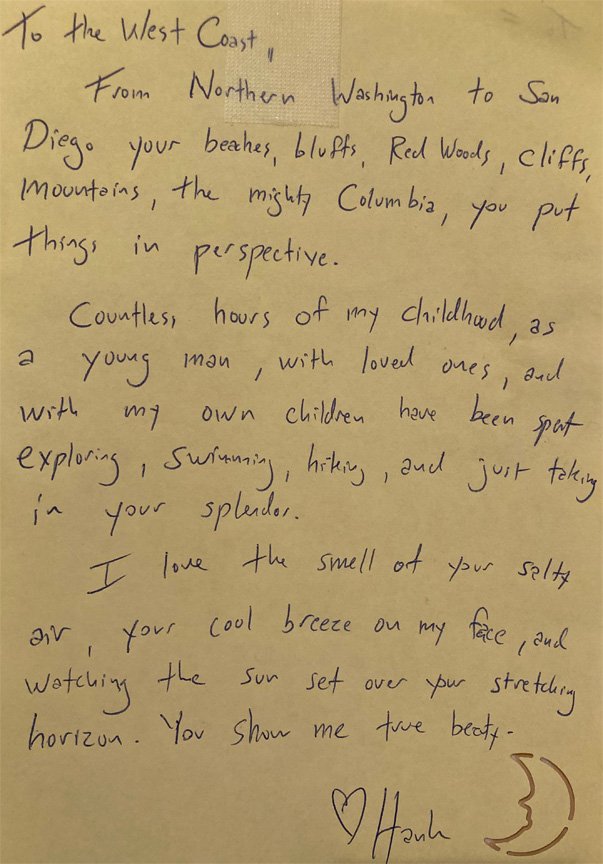 To the West Coast,
From Northern Washington to San
Diego your beaches, bluffs, Red Woods, cliffs,
mountains, the mighty Columbia, you put
things in perspective.
Countless hours of my childhood, as
a young man, with loved ones, and
with my own children have been spent
exploring, swimming, hiking, and just taking
in your splendor.
I love the smell of your salty
air, your cool breeze on my face, and
watching the sun set over your stretching
horizon. You show me true beaty.
♡ Hank